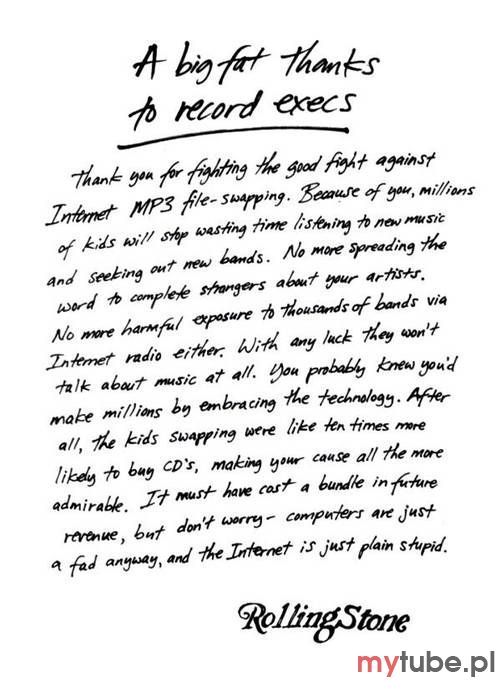 A big fat thanks
to record execs
Thank you for fighting the good fight against
Internet MP3 file-swapping. Because of you, millions
of kids will stop wasting time listening to new music
and seeking out new bands. No more spreading the
word to complete strangers about your artists.
No more harmful exposure to thousands of bands via
Internet radio either. With any luck they won't
talk about music at all. You probably knew you'd
make millions by embracing the technology. After
all, the kids swapping were like ten times more
likely to buy CD's, making your cause all the more
admirable. It must have cost a bundle in future
revenue, but don't worry- computers are just
a fad anyway, and the Internet is just plain stupid.
RollingStone
mytube.pl